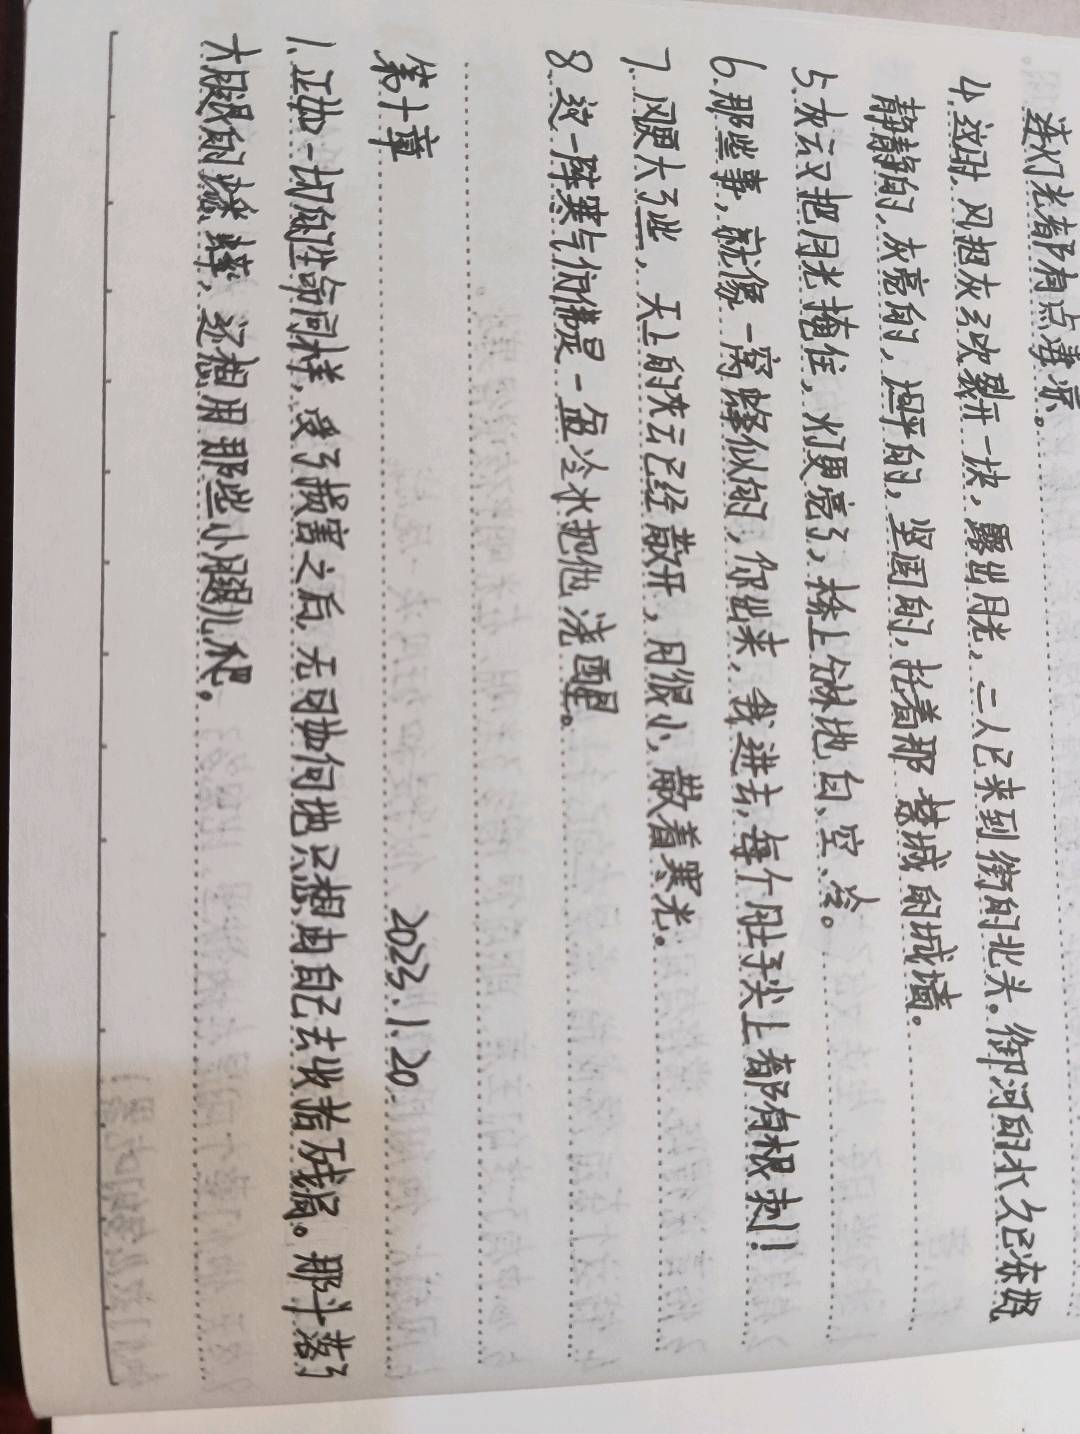 连灯光都有点凄凉。
4.这时,风把灰云吹裂开一块,露出月光,二人已来到街的北头。御河的水久已冻好
静静的,灰亮的,坦平的,坚固的,托着那禁城的城墙。
5.灰云又把月光掩住,灯更亮了,桥上分外地白、空、冷。
6.那些事,就像一窝蜂似的,你出来,我进去,每个肚子尖上都有根刺!
7.风更大了些,天上的灰云已经散开,月很小,散着寒光。
8.这一阵寒气仿佛是一盆冷水把他浇醒。
第十章 2023.1.20.
1.正如一切的生命同样,受了损害之后,无可如何地只想由自己去收拾残局。那斗落了
大腿的蟋蟀,还想用那些小腿儿爬。